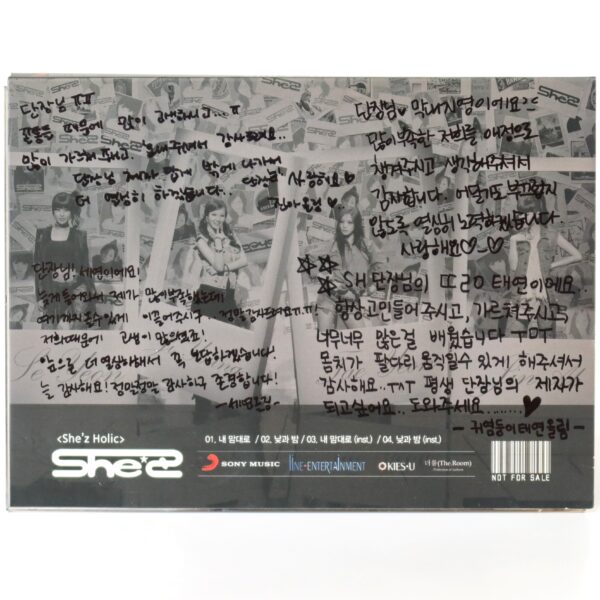 단장님 ㅠㅠ
때문에 많이 ㅠ
많이 가르쳐 주시고 감사해요..
단장님 제자 밖에 나가서
더 열심히 하겠습니다. 단장님 사랑해요♡
진아올림♡
단장님♡ 막내지영이에요
많이 부족한 저희를 애정으로
챙겨주시고 생각해주셔서
감사합니다.
않도록 열심히 노력하겠습니다.
사랑해요♡.♡
단장님! 세연이에요!
늦게 들어와서 제가 많이 부족했는데
여기까지 올 수 있게 이끌어주시구 정말 감사드려요ㅠㅠ!
저희때문에 고생이 많으셨죠!
앞으로 더 열심히해서 꼭 보답하겠습니다!
늘 감사해요! 정말정말 감사하구 존경합니다!
- 세연올림-
☆☆ SH 단장님의 또라 태연이에요
항상 고민들어주시고, 가르쳐주시고
너무너무 많은걸 배웠습니다 TㅁT
몸치가 팔다리 움직일수 있게 해주셔서
감사해요.. TㅅT 평생 단장님의 제자가
되고싶어요.. 도와주세요.......♡
- 귀염둥이 태연 올림 -
<She'z Holic>
01. 내 맘대로 / 02. 낮과 밤 / 03. 내 맘대로 (inst.) / 04. 낮과 밤 (inst.)
She'z
SONY MUSIC
line•ENTERTAINMENT
KIES•U
더룸(The.Room)
NOT FOR SALE